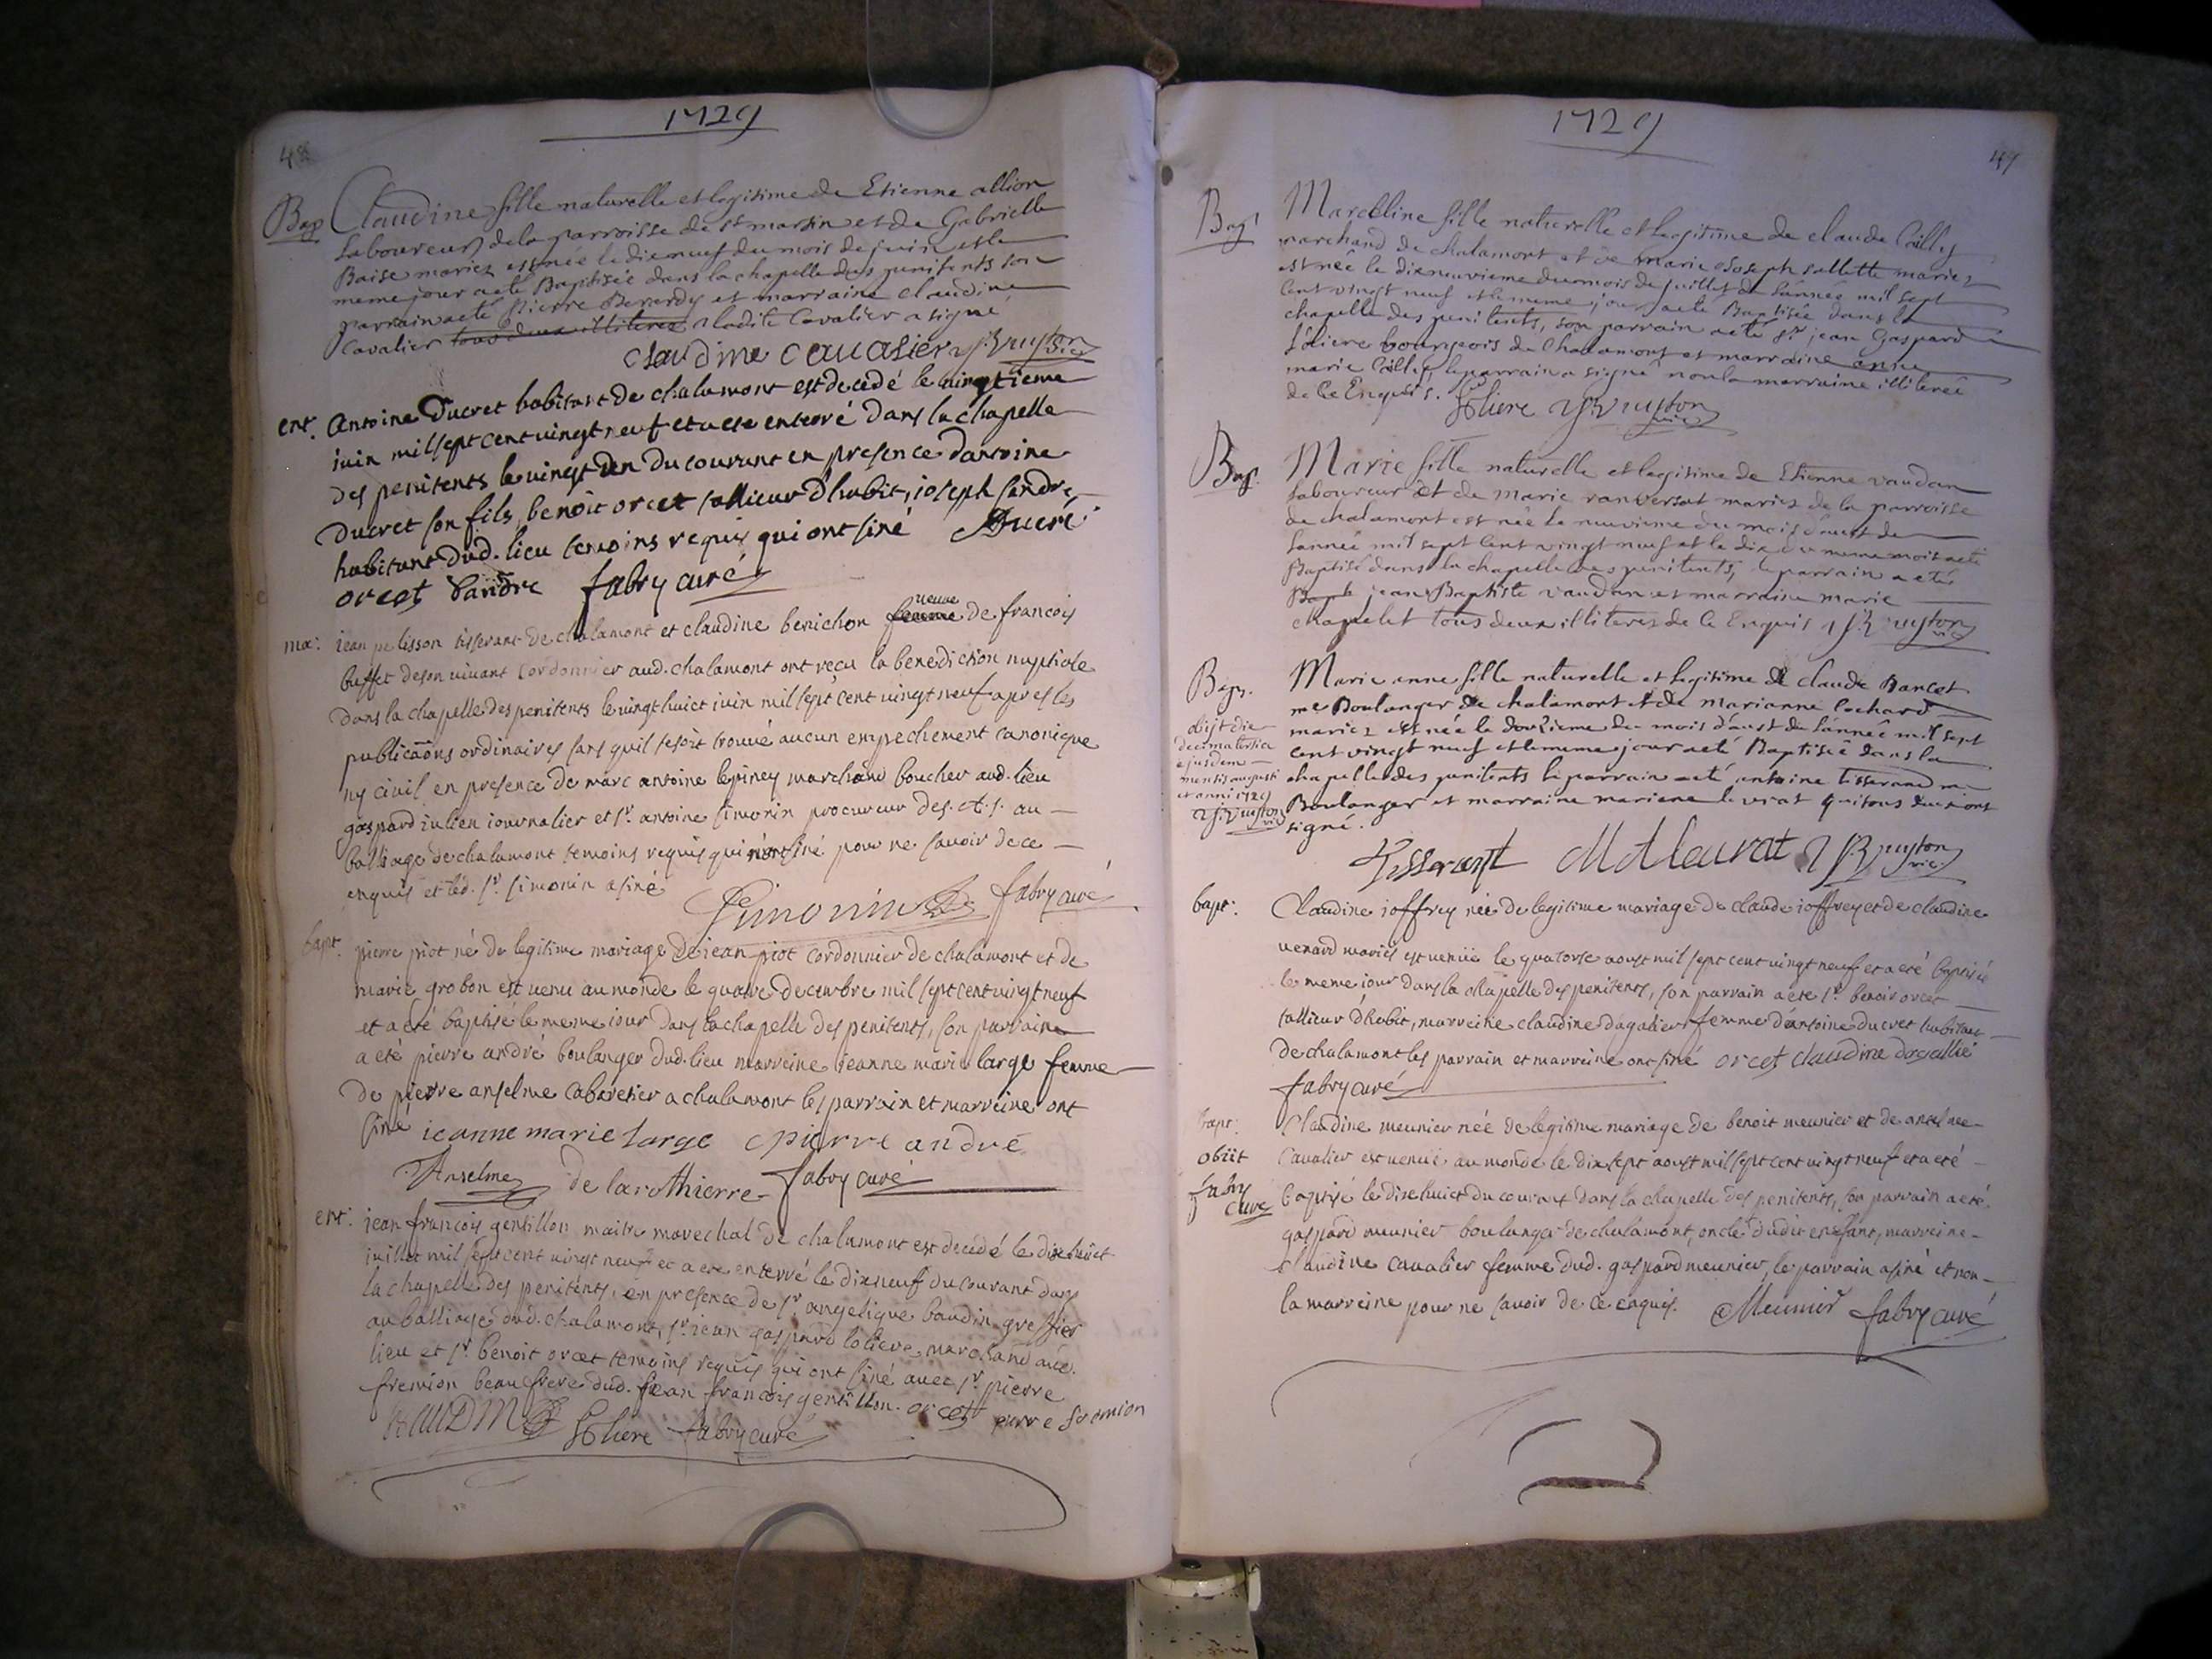 1729
48
Bap Claudine fille naturelle et legitime de Etienne allion
Laboureur de la parroisse de st martin et de Gabrielle
Baise mariez est née le dixneuf du mois de juin et le
meme jour a eté Baptisée dans la chapelle des penitents son
parrain a eté Pierre Berardy et marraine claudine
Cavalier tous deux illiterez ladite Cavalier a signé
claudine cavalier JB ruyton vic
ent. Antoine Ducret habitant de chalamont est decedé le vingtieme
juin mil sept cent vingt neuf et a eté enterré dans la chapelle
des penitents le vingt un du courant en presence d'antoine
Ducret son fils, benoit orcet tallieur d'habit, joseph sandre
habitant dud. lieu temoins requis qui ont siné Ducré
orcet Sandre fabry curé
ma: jean pelisson tisserant de chalamont et claudine benichon femme veuve de francois
buffet de son vivant Cordonnier aud. chalamont ont reçu la benediction nuptiale
dans la chapelle des penitents le vingt huict juin mil sept cent vingt neuf apres les
publicaons ordinaires sans quil se soit trouvé aucun empechement canonique
ny civil en presence de marc antoine lepiney marchand boucher aud. lieu
gaspard julien journalier et sr. antoine simonin procureur des. A. s. au
balliage de chalamont temoins requis qui n'ont siné pour ne savoir de ce
enquis et led. sr. simonin a siné Simonin fabry curé
bapt. pierre piot né de legitime mariage de jean piot cordonnier de chalamont et de
marie grobon est venu au monde le quatre decembre mil sept cent vingt neuf
et a eté baptisé le meme jour dans la chapelle des penitents, son parrain
a eté pierre andré boulanger dud. lieu marreine jeanne marie large femme
de pierre anselme cabaretier a chalamont les parrain et marreine ont
siné jeanne marie large pierre andre
Anselme de larothierre fabry curé
ent: jean francois gentillon maitre marechal de chalamont est decedé le dixhuict
juillet mil sept cent vingt neuf et a eté enterré le dixneuf du courant dans
la chapelle des penitents, en presence de sr. angelique baudin greffier
au balliage dud. chalamont, sr. jean gaspard loliere, marchand aud.
lieu et sr. benoit orcet temoins requis qui ont siné avec sr. pierre
fremion beau frere dud. jean francois gentillon. orcet pierre fremion
BAUDIN Loliere fabry curé
1729
49
Bap. Marcelline fille naturelle et legitime de claude Cilly
marchand de chalamont et de marie Joseph sallette mariez
est née le dixneuvieme du mois de juillet de l'année mil sept
Cent vingt neuf et le meme jour a eté Baptisée dans la
chapelle des penitents, son parrain a eté sr jean Gaspard
Loliere bourgeois de Chalamont et marraine anne
marie Cilly, le parrain a signé non la marraine illiterée
de Ce Enquis. Loliere JB ruyton vic
Bap. Marie fille naturelle et legitime de Etienne vaudan
Laboureur et de marie ranversat mariez de la parroisse
de chalamont est née le neuvieme du mois d'aust de
l'année mil sept Cent vingt neuf et le dix du meme mois a eté
Baptisé dans la chapelle des penitents, le parrain a eté
Bapt jean Baptiste vaudan et marraine marie
chapelet tous deux illiterez de Ce Enquis JB ruyton vic
Bap. Marie anne fille naturelle et legitime de claude Bancet
me Boulanger de chalamont et de marianne Cochard
mariez est née le douzieme du mois d'aust de l'année mil sept
cent vingt neuf et le meme jour a eté Baptisée dans la
chapelle des penitents le parrain a eté antoine tisserand me
Boulanger et marraine mariane levrat qui tous deux ont
signé.
obijt die
decima tertia
ejusdem
mensis augusti
et anni 1729
JB ruyton vic
Tisserant M A levrat JB ruyton vic.
bapt: Claudine joffrey née de legitime mariage de claude joffrey et de claudine
venard mariés est venüe le quatorse aoust mil sept cent vingt neuf et a eté baptisée
le meme jour dans la chapelle des penitents, son parrain a eté sr. benoit orcet
tallieur d'habit, marreine claudine dagalier femme d'antoine ducret habitant
de chalamont les parrain et marreine ont siné orcet claudine dagallié
fabry curé
bapt: Claudine meunier née de legitime mariage de benoit meunier et de anselmee
obiit Cavalier est venüe au monde le dixsept aoust mil sept cent vingt neuf et a eté
fabry curé baptisé le dixhuict du courant dans la chapelle des penitents, son parrain a eté
gaspard meunier boulanger de chalamont, oncle dudit enfant, marreine
claudine cavalier femme dud. gaspard meunier, le parrain a siné et non
la marreine pour ne savoir de ce enquis. Meunier fabry curé